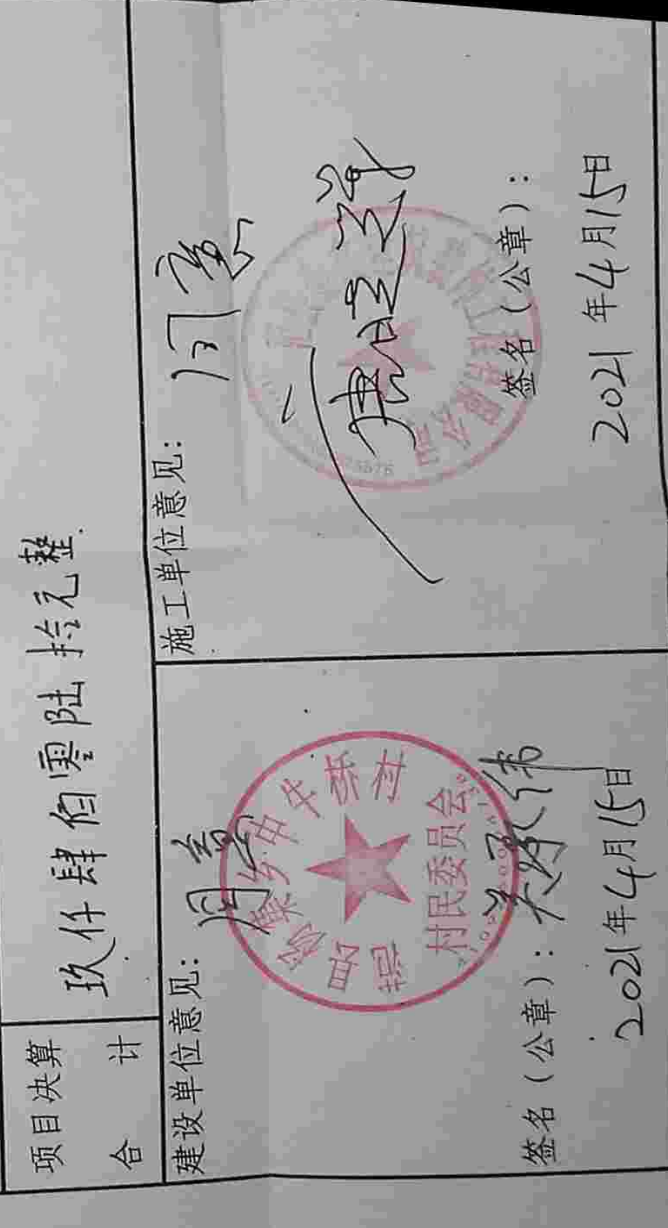 项目决算
合计
玖仟肆佰零陆拾元整
建设单位意见：
同意
杨集乡中牛桥村
村民委员会
签名（公章）：
2021年4月15日
施工单位意见：
同意
工程有限公司
签名（公章）：
2021年4月15日